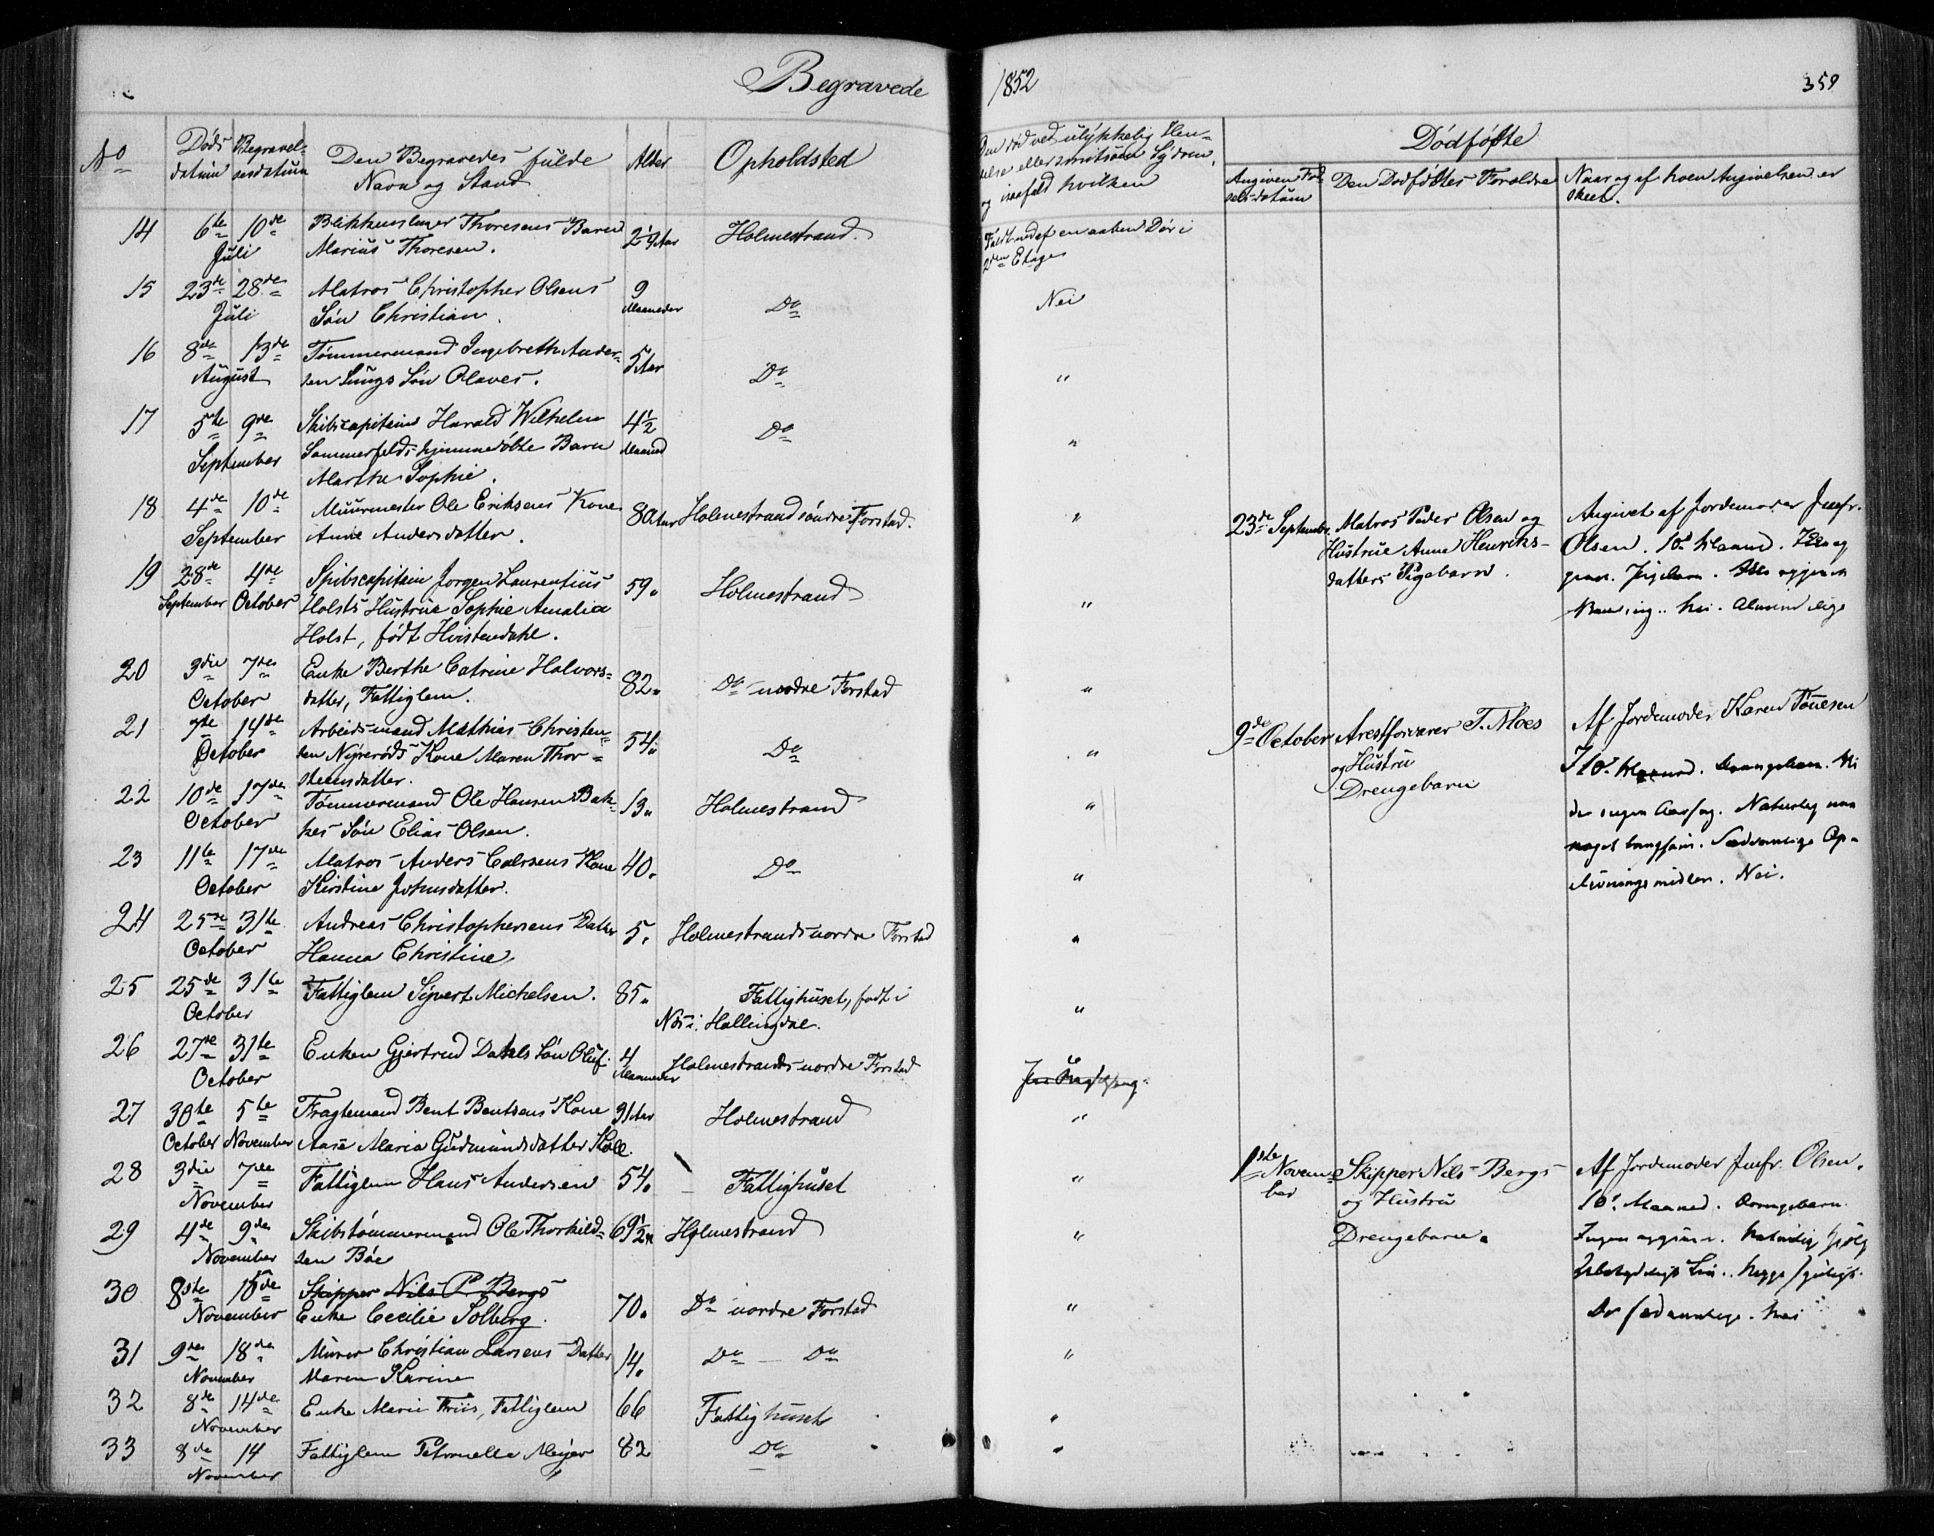 Begravede
1852
359
No
Døds datum
Begravelsesdatum
Den Begravedes fulde Navn og Stand
Alder
Opholdsted
Om død ved ulykkelig Hendelse eller
og isaafald hvilken
Dødfødte
Angiven Fødselsdatum
Den Dødfødtes Forældre
Naar og af hvem Angivelsen er skeet.
14 6te 10de Blikkenslager Thoresens Barn 2½ Aar Holmestrand. Faldt ned af en aaben Dør i
Juli Marius Thoresen. 2den Etage
15 23de 28de Matros Christopher Olsens 9 Do Nei
Juli Søn Christian. Maaneder
16 8de 13de Tømmermand Ingebreth Ander- 5 Aar Do "
August sen Lungs Søn Olaves.
17 5te 9de Skibscapitein Harald Wilhelm 4½ Do "
September Sommerfelds hjemmedøbte Barn Maaned
Marthe Sophie.
18 4de 10de Muurmester Ole Eriksens Kone 80 Aar Holmestrand søndre Forstad. "
September Anne Andersdatter.
23de September Matros Peder Olsen og
Hustrue Anne Henriks-
datters Pigebarn.
Angivet af Jordemoder Jmfr.
Olsen. 10de Maaned.
19 28de 4de Skibscapitein Jørgen Laurentius 59. Holmestrand "
September October Holsts Hustrue Sophie Amalia
Holst, født Hvistendahl.
Nei. Almindelige
20 3die 7de Enke Berthe Catrine Halvors- 82. Do nordre Forstad "
October datter, Fattiglem.
21 7de 14de Arbeidsmand Mathias Christen- 54. Do "
October sen Nyrerøds Kone Maren Thor-
steensdatter.
9de October Arrestforvarer T. Moes
og Hustru
Drengebarn
Af Jordemoder Karen Tønesen
I 10de Maaned. Drengebarn.
der ingen Aarsag. Naturlig men
noget langsom. Sædvanlige Op-
livningsmidler. Nei.
22 10de 17de Tømmermand Ole Hansen Bak- 13. Holmestrand "
October kes Søn Elias Olsen.
23 11te 17de Matros Anders Carlsens Kone 40. Do "
October Kirstine Johnsdatter.
24 25de 31te Andreas Christophersens Datter 5. Holmestrands nordre Forstad "
October Hanna Christine
25 25de 31te Fattiglem Sivert Michelsen. 85. Fattighuset, født i "
October Næs i Hallingdal.
26 27de 31te Enken Gjertrud Dahls Søn Oluf. 4 Holmestrands nordre Forstad
October Maaneder
27 30te 5te Fragtemand Bent Bentsens Kone 31 Aar Holmestrand "
October November Aase Maria Gudmundsdatter Koll.
28 3die 7de Fattiglem Hans Andersen 54. Fattighuset "
November
1ste November Skipper Nils Bergs
og Hustru
Drengebarn.
Af Jordemoder Jmfr. Olsen.
10de Maaned. Drengebarn
29 4de 9de Skibstømmermand Ole Thorkild- 69½ Holmestrand "
November sen Bøe
30 8de 15de Skipper Nils P. Bergs 70. Do nordre Forstad "
November Enke Cecilie Solberg.
De sædvanlige. Nei
31 9de 18de Murer Christian Larsens Datter 14. Do — Do "
November Maren Karine
32 8de 14de Enke Marie Friis, Fattiglem 66 Fattighuset "
November
33 8de 14 Fattiglem Petronelle Meyer 82 Do "
November